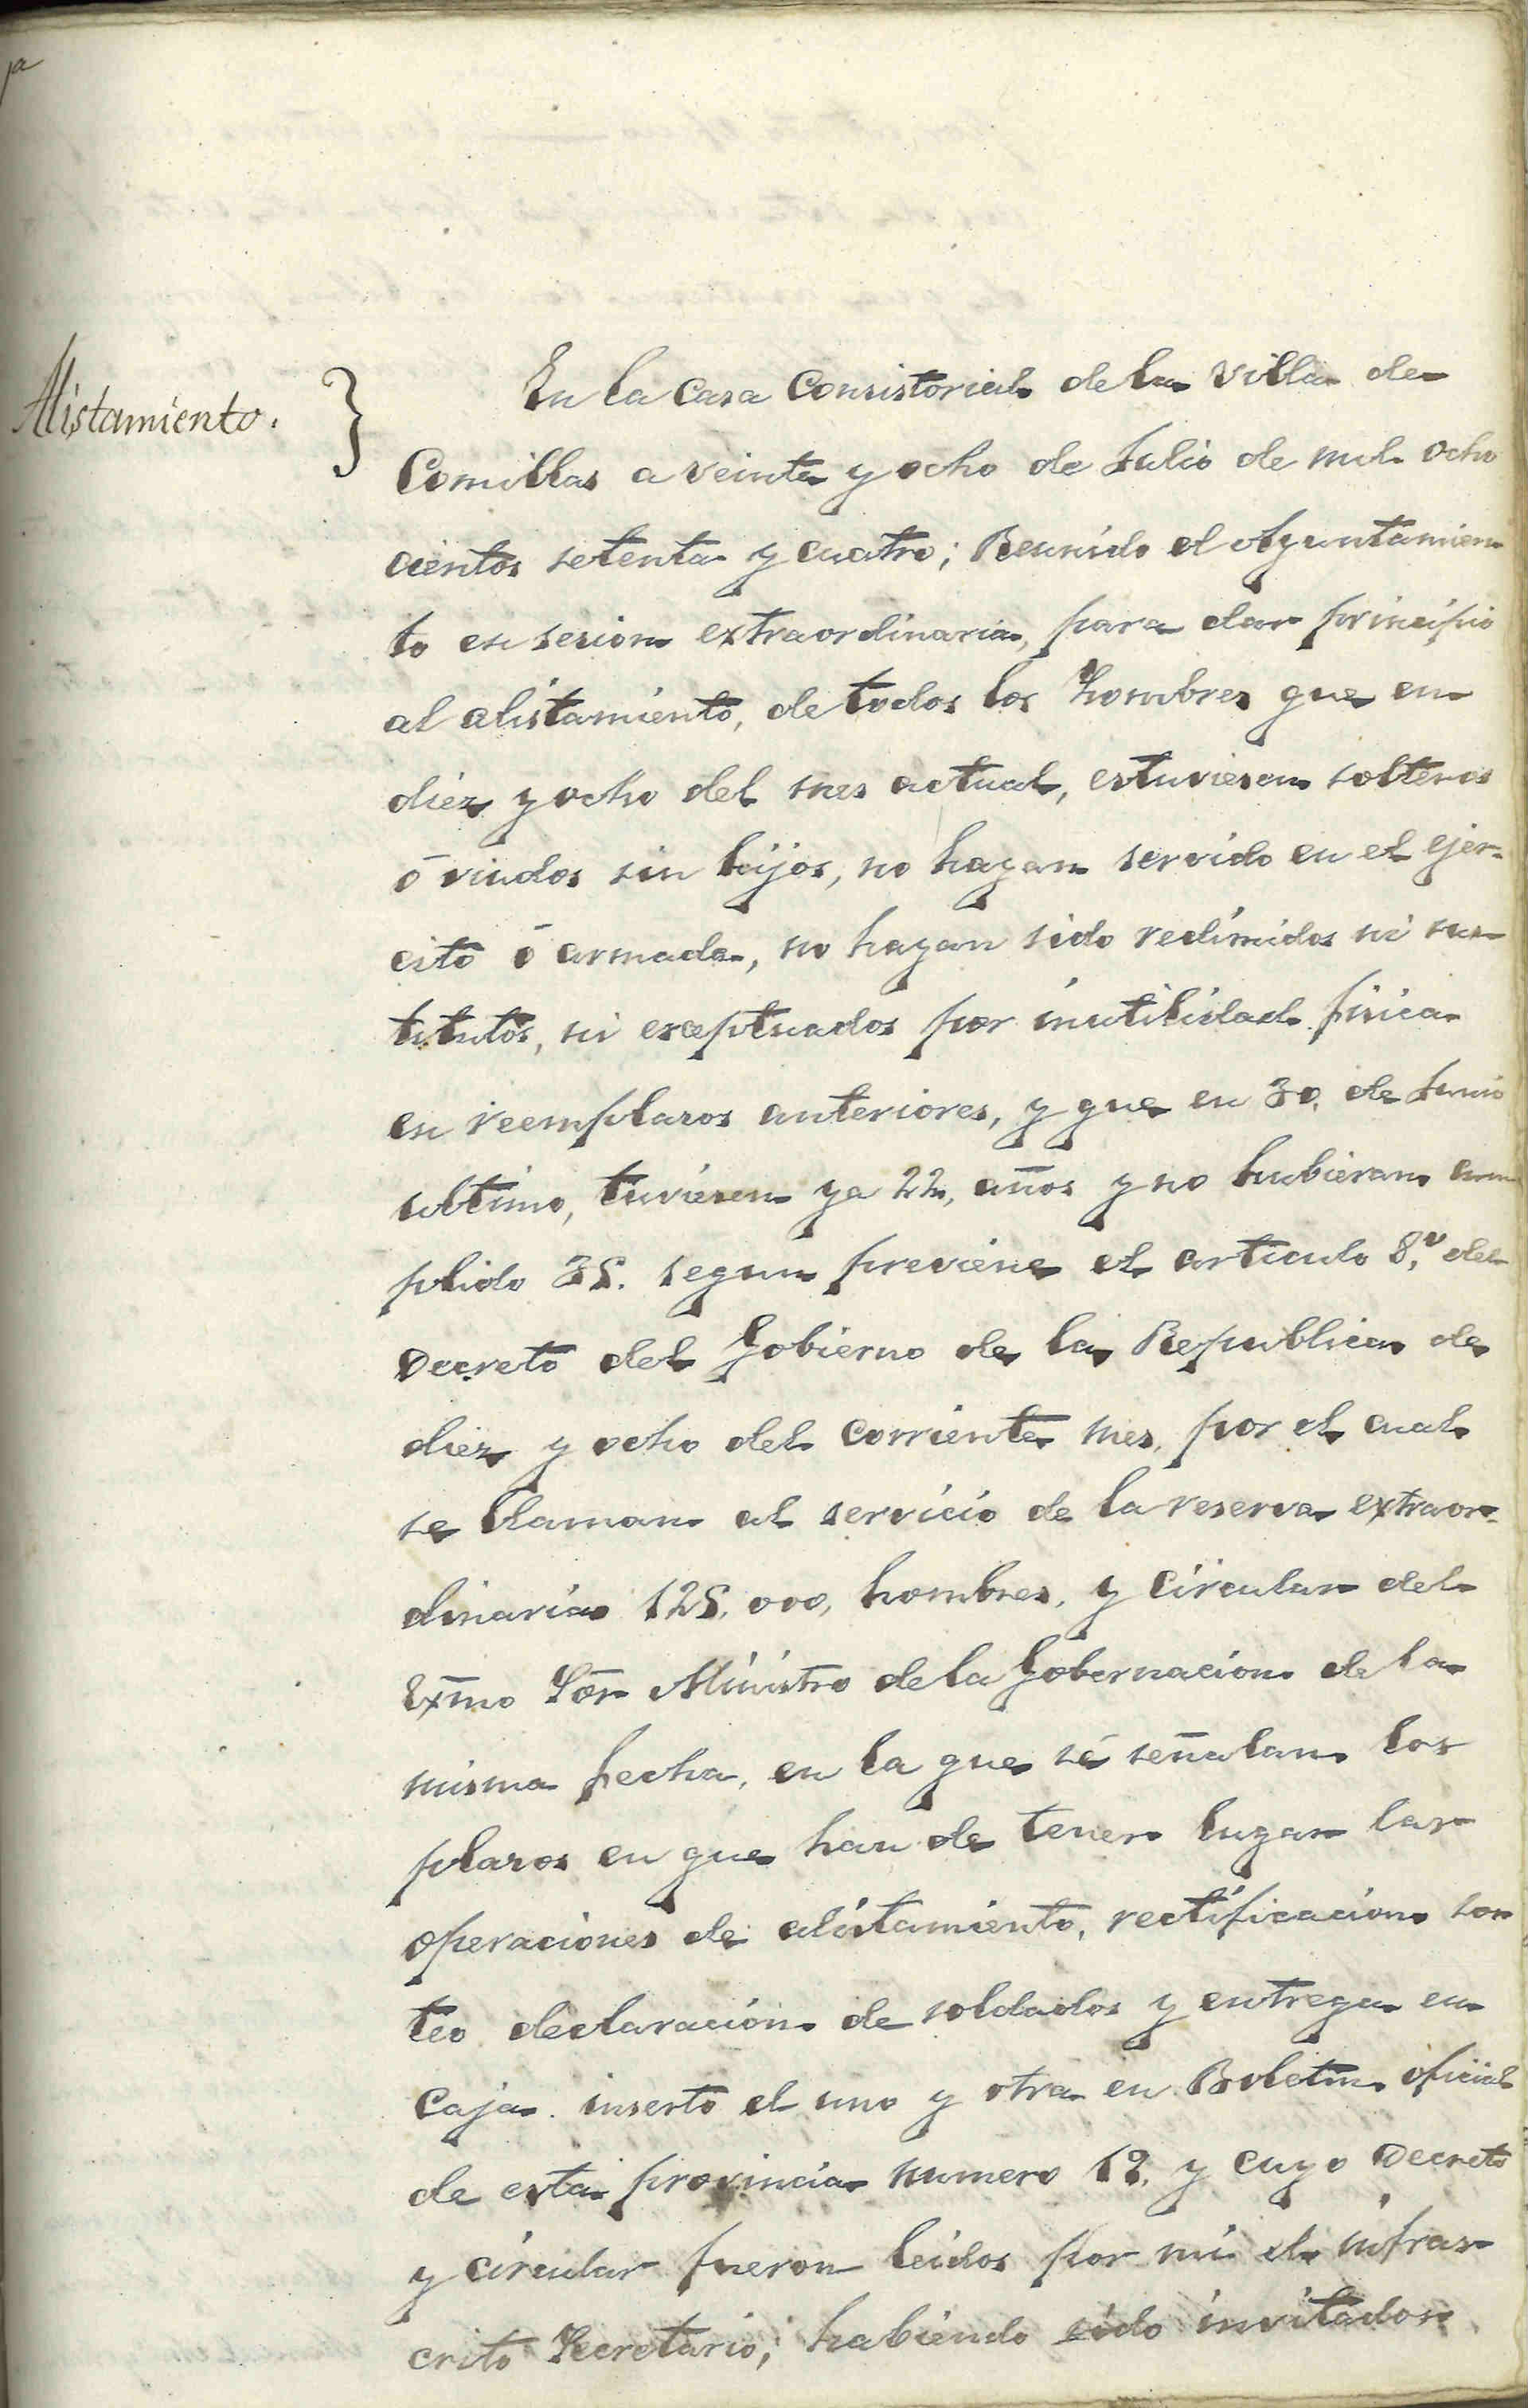 Alistamiento. }
En la Casa Consistorial de la Villa de
Comillas a veinte y ocho de Julio de mil ocho
cientos setenta y cuatro; Reunido el Ayuntamien
to en sesion extraordinaria, para dar principio
al alistamiento, de todos los hombres que en
diez y ocho del mes actual, estuviesen solteros
ó viudos sin hijos, no hayan servido en el ejer-
cito ó armada, no hayan sido redimidos ni sus
titutos, ni exceptuados por inutilidad fisica
en reemplazos anteriores, y que en 30, de Junio
ultimo, tuviesen ya 22, años y no hubieran cum
plido 35. segun previene el articulo 8.º del
Decreto del Gobierno de la Republica de
diez y ocho del corriente mes, por el cual
se llaman al servicio de la reserva extraor-
dinaria 125,000, hombres, y circular del
Exmo Sor Ministro de la Gobernacion de la
misma fecha, en la que sé señalan los
plazos en que han de tener lugar las
operaciones de alistamiento, rectificacion sor
teo declaracion de soldados y entrega en
caja. inserto el uno y otra en Boletin oficial
de esta provincia numero 12, y cuyo Decreto
y circular fueron leidos por mi el infras
crito Secretario; habiendo sido invitados